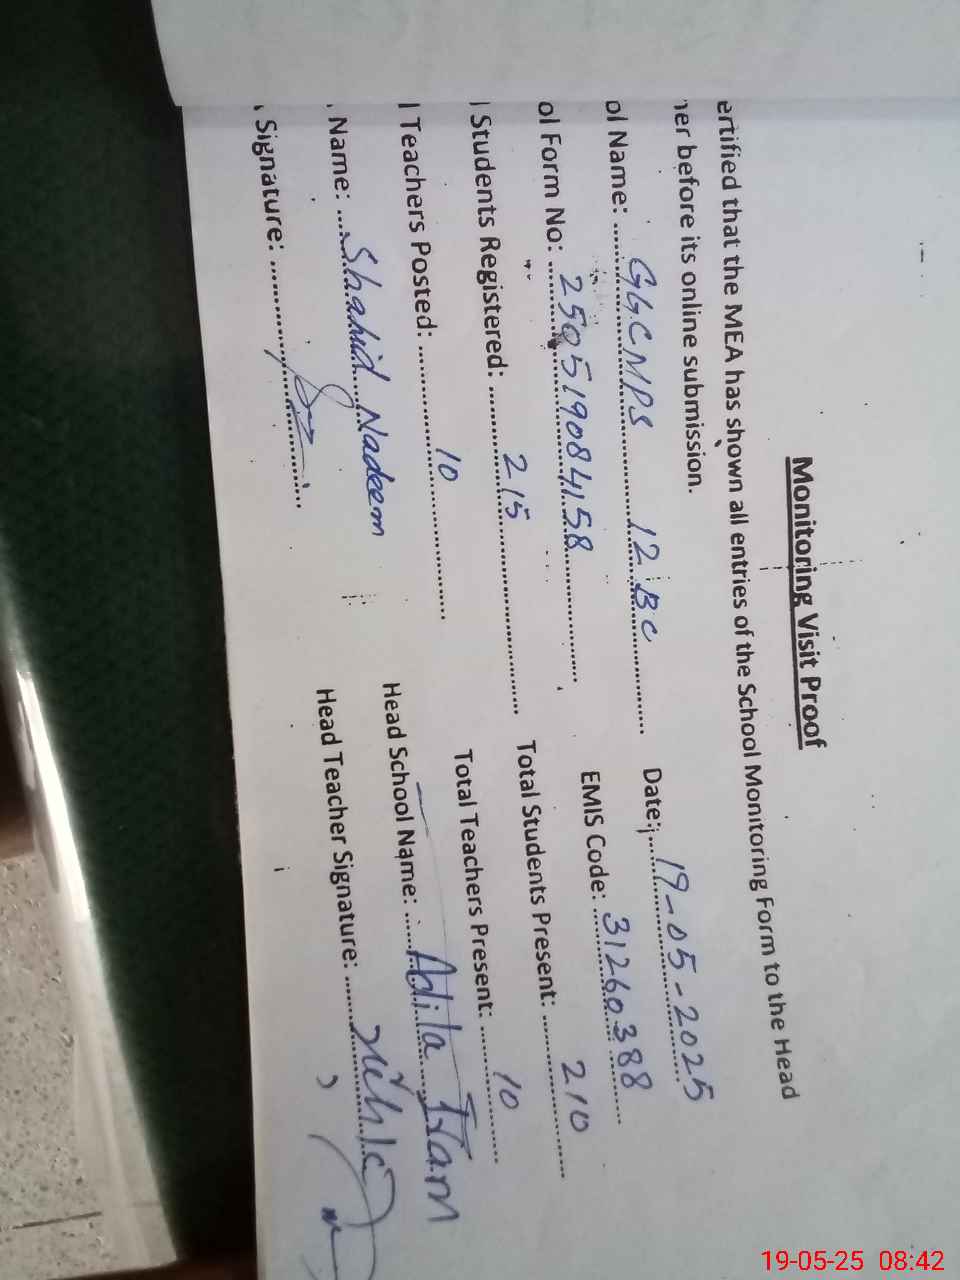 Monitoring Visit Proof
ertified that the MEA has shown all entries of the School Monitoring Form to the Head
her before its online submission.
ol Name: GGCMPS 12 BC Date: 19-05-2025
ol Form No: 250519084158 EMIS Code: 31260388
l Students Registered: 215 Total Students Present: 210
l Teachers Posted: 10 Total Teachers Present: 10
Name: Shahid Nadeem Head School Name: Adila
Signature: Head Teacher Signature:
19-05-25 08:42